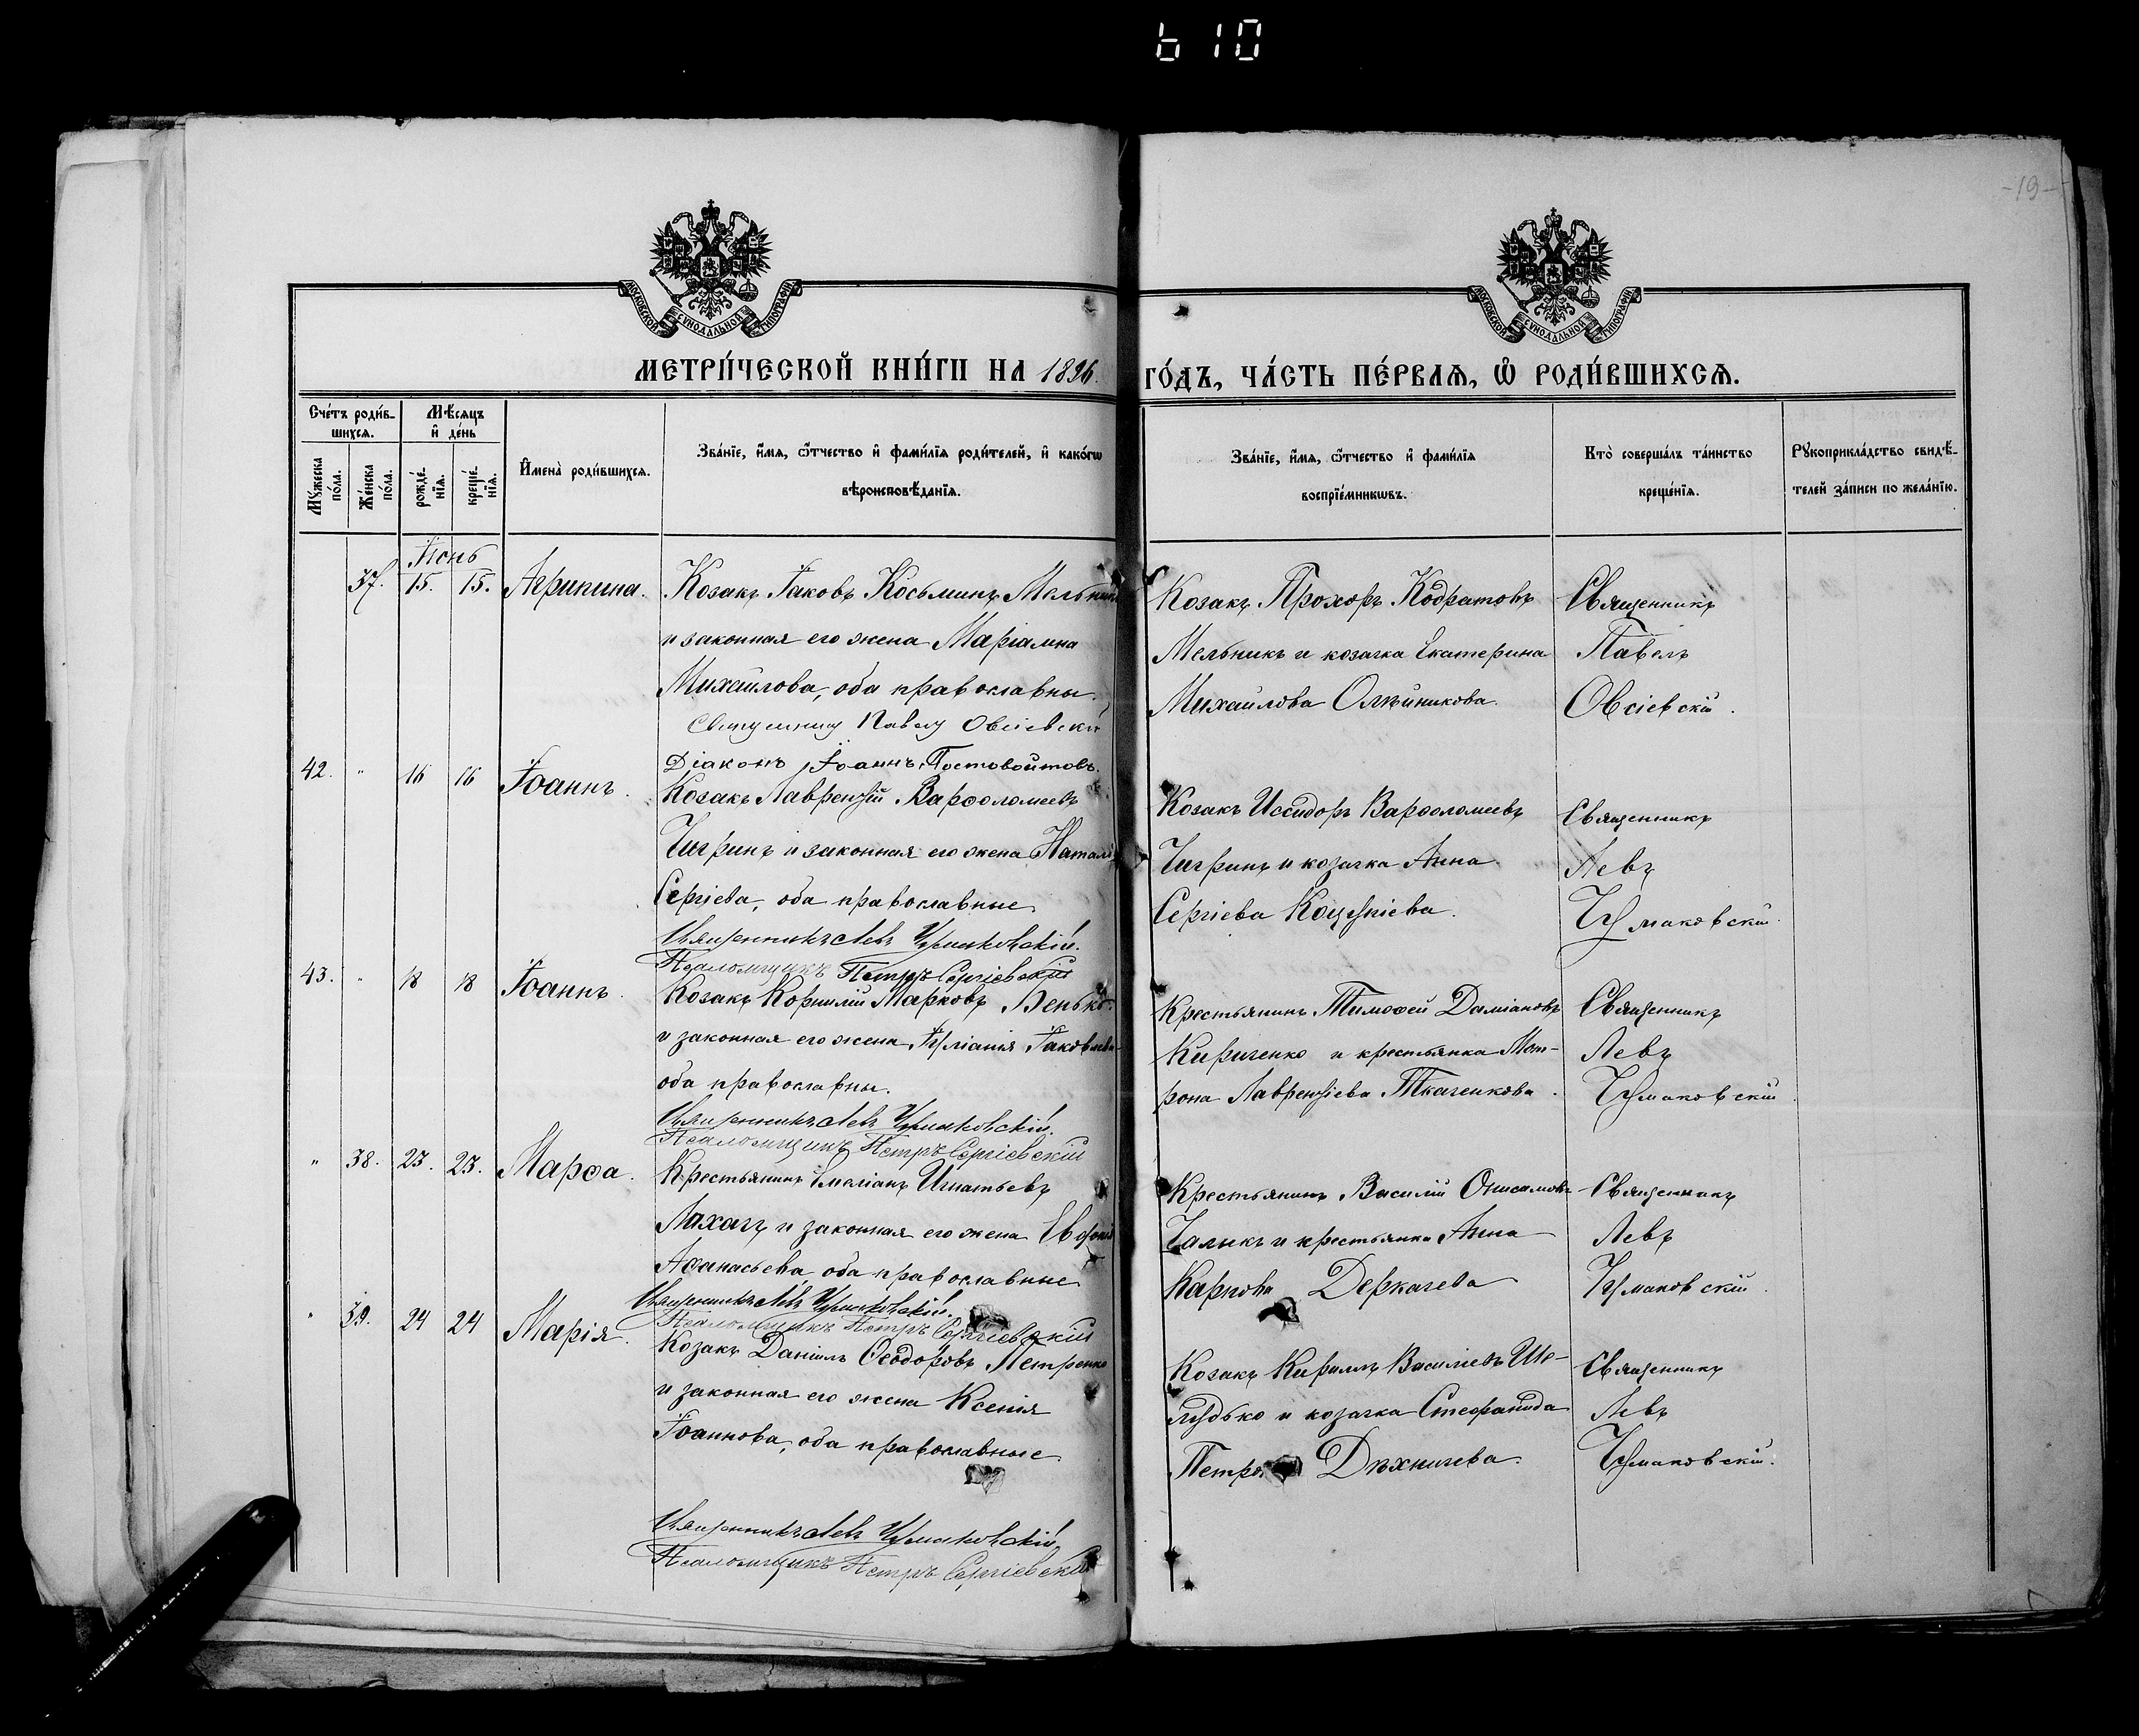 610
-19-
МОСКОВСКОЙ СѴНОДАЛЬНОЙ ТИПОГРАФІИ
МОСКОВСКОЙ СѴНОДАЛЬНОЙ ТИПОГРАФІИ
МЕТРИ́ЧЕСКОЙ КНИ́ГИ НА 1896.
ГО́ДЪ, ЧА́СТЬ ПЕ́РВАЯ, Ѡ҆ РОДИ́ВШИХСЯ.
Сче́тъ роди́в-
шихся.
Мѣ́сяцъ
и҆ де́нь
Мꙋ́жеска
по́ла.
Же́нска
по́ла.
рожде́-
нїя.
креще́-
нїя.
И҆мена̀ роди́вшихся.
Зва́нїе, и҆́мя, ѻ҆́тчество и҆ фами́лїя роди́телей, и҆ како́гѡ
вѣроисповѣ́данїя.
Зва́нїе, и҆́мя, ѻ҆́тчество и҆ фами́лїя
воспрїе́мникѡвъ.
Кто̀ соверша́лъ та́инство
креще́нїя.
Рꙋкоприкла́дство свидѣ́-
телей за́писи по жела́нїю.
Іюнь
37. 15. 15. Агрипина.
Козакъ Іаковъ Косьминъ Мельникъ
и законная его жена Маріамна
Михайлова, оба православны.
Священникъ Павелъ Овсіевскій
Діаконъ Іоаннъ Постовойтовъ.
Козакъ Прохоръ Кодратовъ
Мельникъ и козачка Екатерина
Михайлова Олѣйникова.
Священникъ
Павелъ
Овсіевскій.
42. " 16 16 Іоаннъ.
Козакъ Лаврентій Варѳоломеевъ
Чигринъ и законная его жена Наталія
Сергіева, оба православные
Священникъ Левъ Чумаковскій.
Псаломщикъ Петръ Сергіевскій
Козакъ Иссидоръ Варѳоломеевъ
Чигринъ и козачка Анна
Сергіева
Священникъ
Левъ
Чумаковскій.
43. " 18 18 Іоаннъ.
Козакъ Корнилій Марковъ Венько.
и законная его жена Іуліанія Іаковлева
оба православны.
Священникъ Левъ Чумаковскій.
Псаломщикъ Петръ Сергіевскій
Крестьянинъ Тимоѳей Даміановъ
Кириченко и крестьянка Мот-
рона Лаврентіева Ткаченкова.
Священникъ
Левъ
Чумаковскій
" 38. 23. 23. Марѳа.
Крестьянинъ Емеліанъ Игнатьевъ
Лахачъ и законная его жена
Аѳанасьева оба православные
Священникъ Левъ Чумаковскій.
Псаломщикъ Петръ Сергіевскій
Крестьянинъ Василій Онисимовъ
Чалыкъ и крестьянка Анна
Карпова Деркачева
Священникъ
Левъ
Чумаковскій.
" 39. 24 24 Марія.
Козакъ Даніилъ Ѳеодоровъ Петренко
и законная его жена Ксенія
Іоаннова, оба православные
Священникъ Левъ Чумаковскій.
Псаломщикъ Петръ Сергіевскій
Козакъ Кирилъ Василіевъ Ше-
лудько и козачка Стефанида
Петрова
Священникъ
Левъ
Чумаковскій.